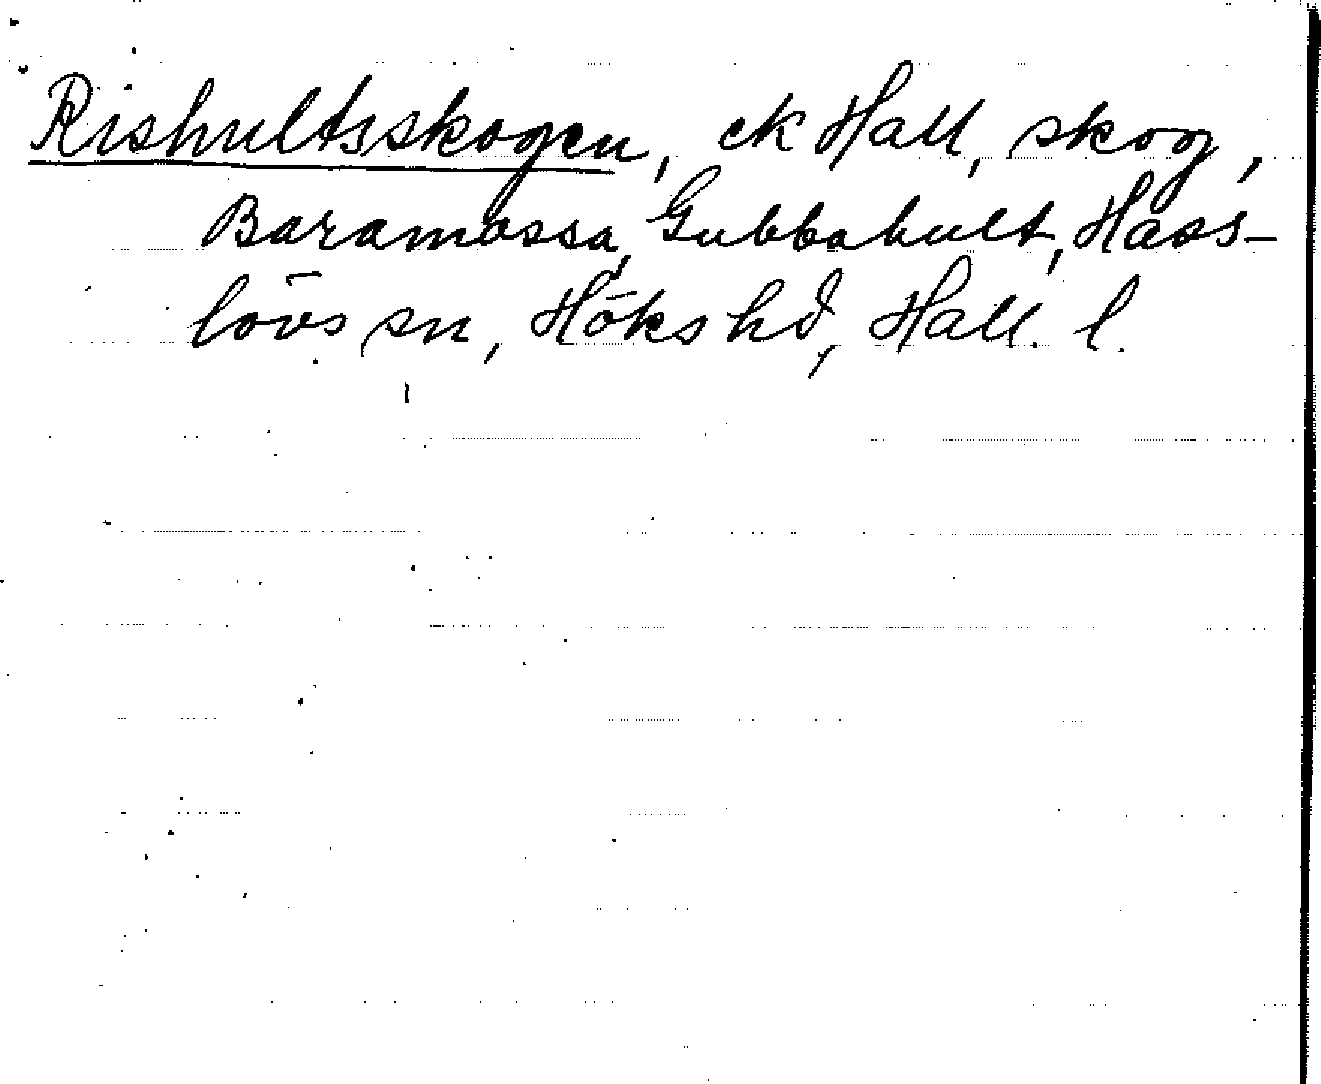 Rishultsskogen, ek Hall, skog,
Baramossa, Gubbahult, Hass-
lövs sn, Höks hd, Hall. l.